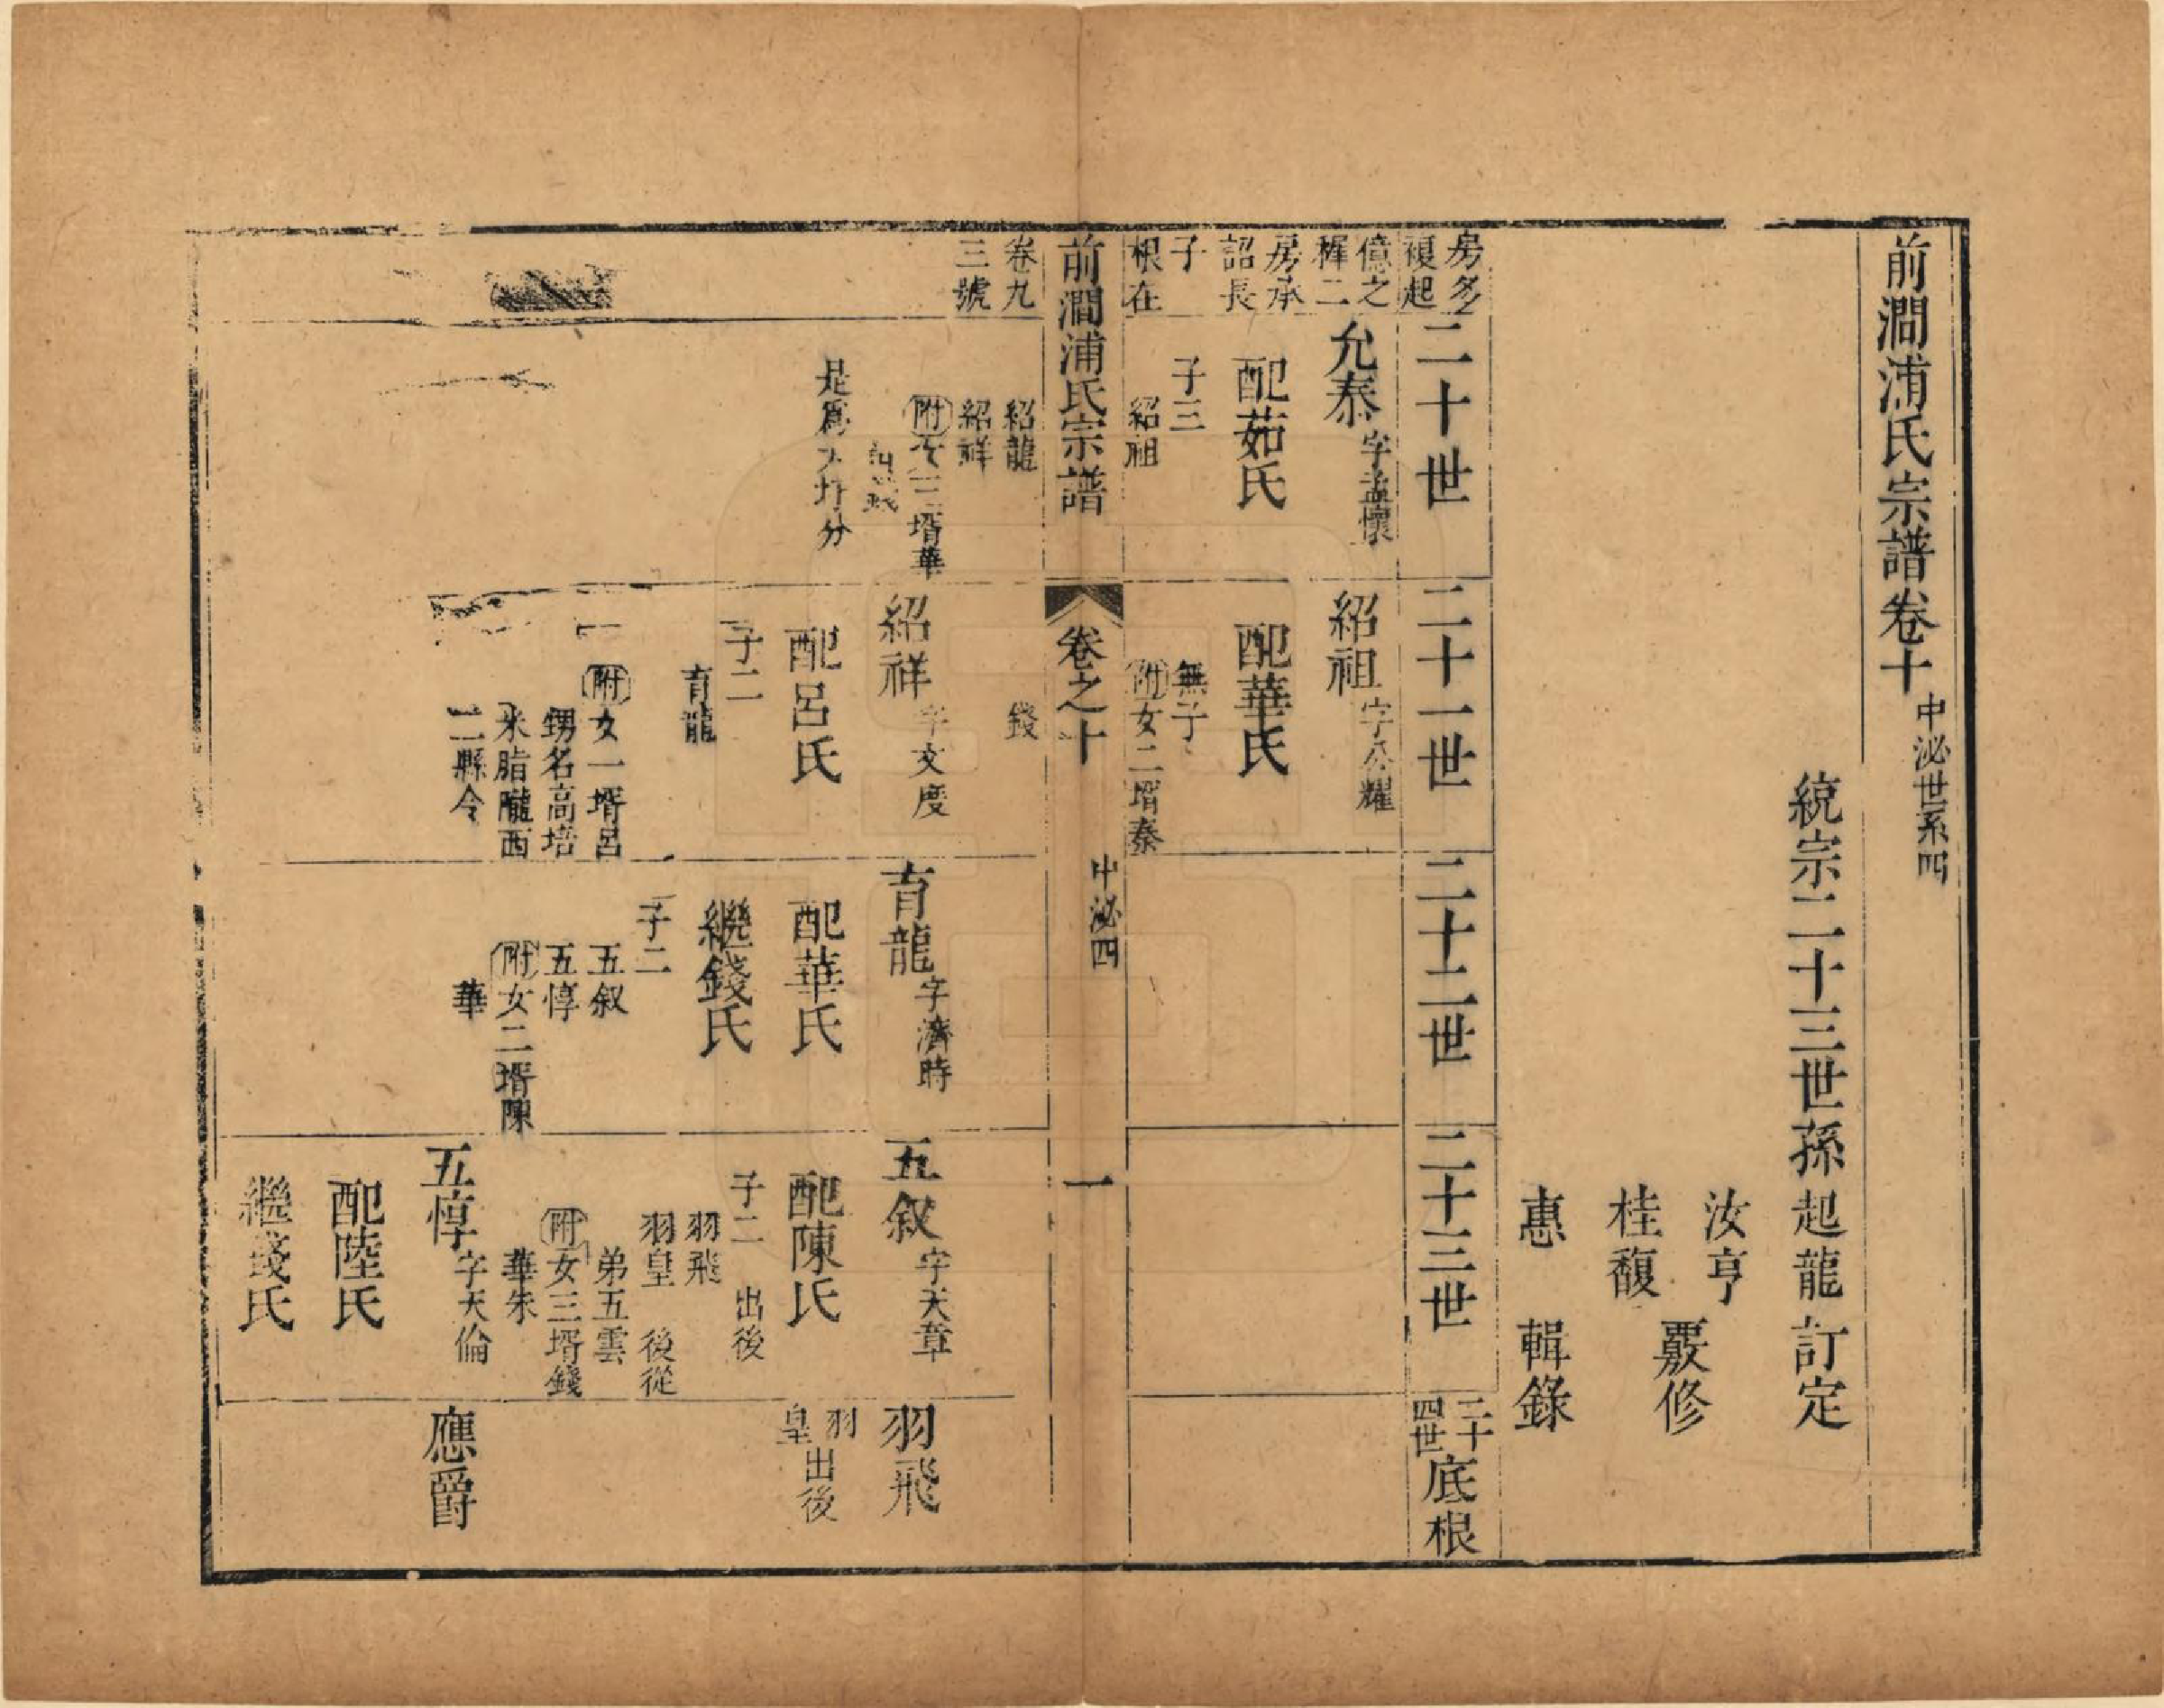 前澗浦氏宗譜卷十 中泌世系四
統宗二十三世孫起龍訂定
汝亨
桂馥
覈修
惠 輯錄
房多
複起
億之
樨二
房承
詔長
子
根在
二十世
允泰 字孟懷
配茹氏
子三
紹祖
二十一世
紹祖 字公耀
配華氏
無子
附女二壻秦
二十二世
二十三世
二十四世底根
前澗浦氏宗譜
卷之十
中泌四
一
卷九
三號
紹龍
紹祥
附女三壻華
是爲大圩分
錢
紹祥 字文度
配呂氏
子二
育龍
附女一壻呂
甥名高培
米脂隴西
二縣令
育龍 字濟時
配華氏
繼錢氏
子二
五叙
五惇
附女二壻陳
華
五叙 字天章
配陳氏
子二
羽飛 出後
羽皇 後從
弟五雲
附女三壻錢
華朱
五惇 字天倫
配陸氏
繼錢氏
羽飛
羽皇出後
應爵